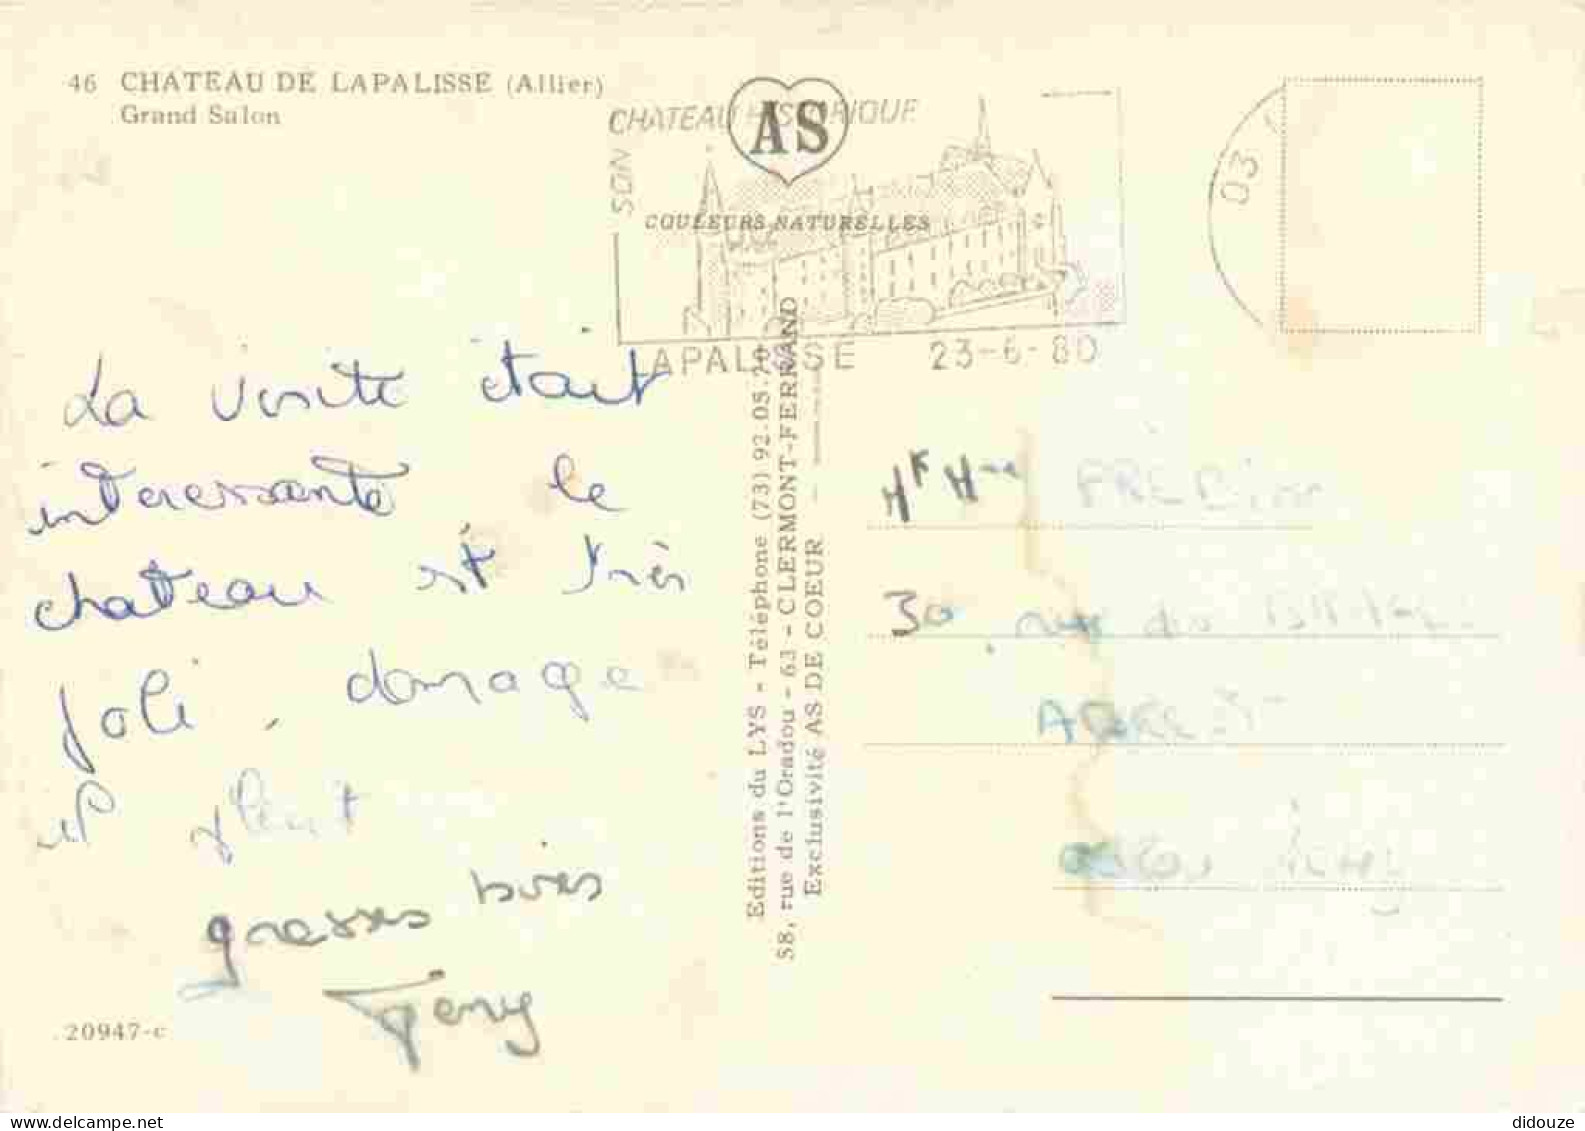 46 CHATEAU DE LAPALISSE (Allier)
Grand Salon
SON CHATEAU HISTORIQUE
AS
COULEURS NATURELLES
LAPALISSE 23-6-80
03
La visite était
interessante le
chateau est très
joli, domage
il pleut
grosses bises
20947-c
Editions du LYS - Téléphone (73) 92.05.20 -
58, rue de l'Oradou - 63 - CLERMONT-FERRAND
Exclusivité AS DE COEUR -
30, rue des
didouze